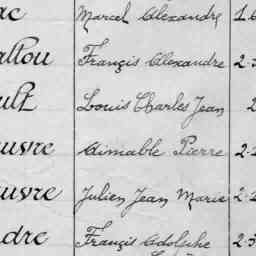 ac Marcel Alexandre 1.6
attou François Alexandre 2-3
ult Louis Charles Jean 2
uvre Aimable Pierre 2-2
uvre Julien Jean Marie 2-2
dre François Adolphe 2-3